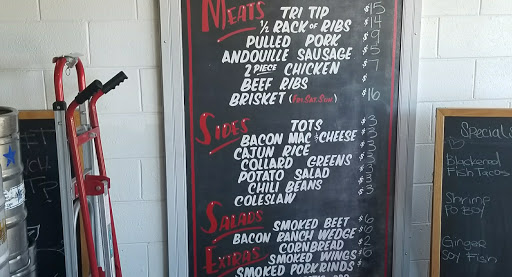 MEATS TRI TIP $15
½ RACK OF RIBS $14
PULLED PORK $9
ANDOUILLE SAUSAGE $5
2 PIECE CHICKEN $7
BEEF RIBS $
BRISKET (FRI. SAT. SUN.) $16
SIDES TOTS $3
BACON MAC & CHEESE $3
CAJUN RICE $3
COLLARD GREENS $3
POTATO SALAD $3
CHILI BEANS $3
COLESLAW $3
SALADS SMOKED BEET $6
BACON RANCH WEDGE $6
EXTRA'S CORNBREAD $2
SMOKED WINGS $6
SMOKED PORK RINDS $
Specials
Blackened
Fish Tacos
Shrimp
PO BOY
Ginger
Soy Fish